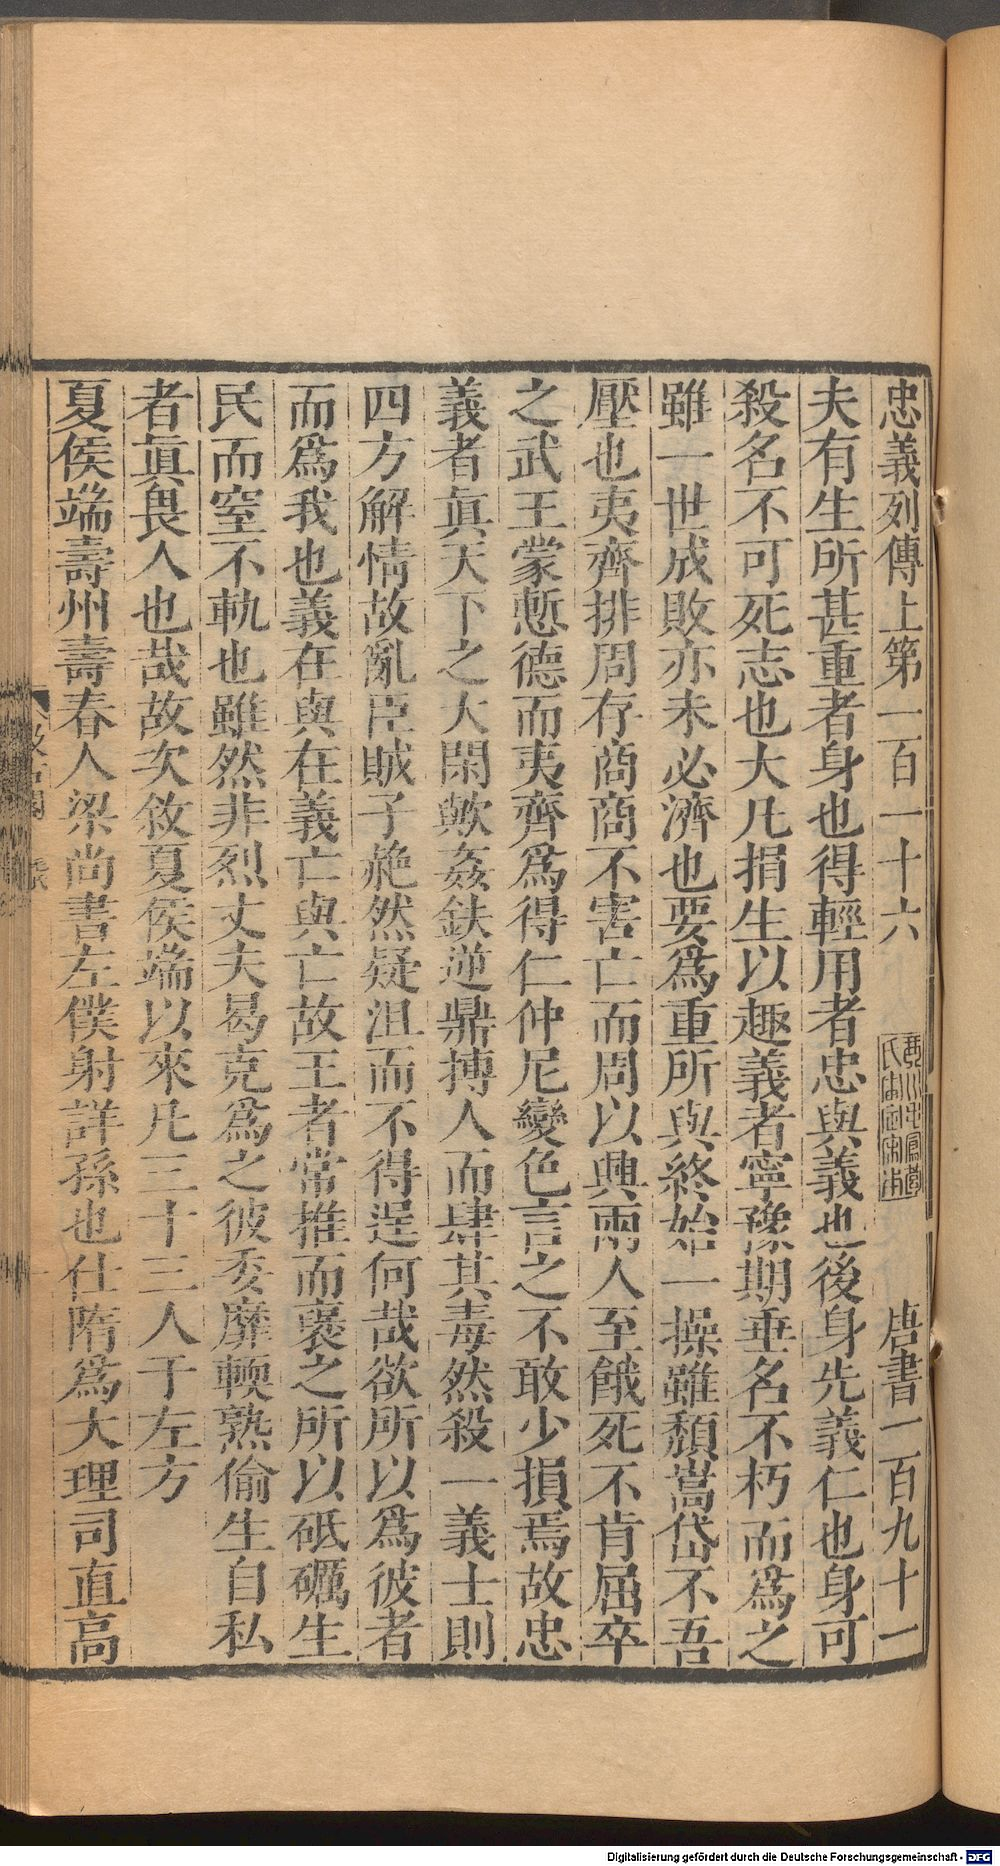 忠義列傳上第一百一十六 琴川毛鳳苞氏審定宋本 唐書一百九十一
夫有生所甚重者身也得輕用者忠與義也後身先義仁也身可
殺名不可死志也大凡捐生以趣義者寧豫期垂名不朽而爲之
雖一世成敗亦未必濟也要爲重所與終始一操雖頹嵩岱不吾
壓也夷齊排周存商商不害亡而周以興兩人至餓死不肯屈卒
之武王蒙慙德而夷齊爲得仁仲尼變色言之不敢少損焉故忠
義者眞天下之大閑歟姦鈇逆鼎搏人而肆其毒然殺一義士則
四方解情故亂臣賊子赩然疑沮而不得逞何哉欲所以爲彼者
而爲我也義在與在義亡與亡故王者常推而襃之所以砥礪生
民而窒不軌也雖然非烈丈夫曷克爲之彼委靡輭熟偷生自私
者眞畏人也哉故次敘夏侯端以來凡三十三人于左方
夏侯端壽州壽春人梁尚書左僕射詳孫也仕隋爲大理司直高
Digitalisierung gefördert durch die Deutsche Forschungsgemeinschaft - DFG